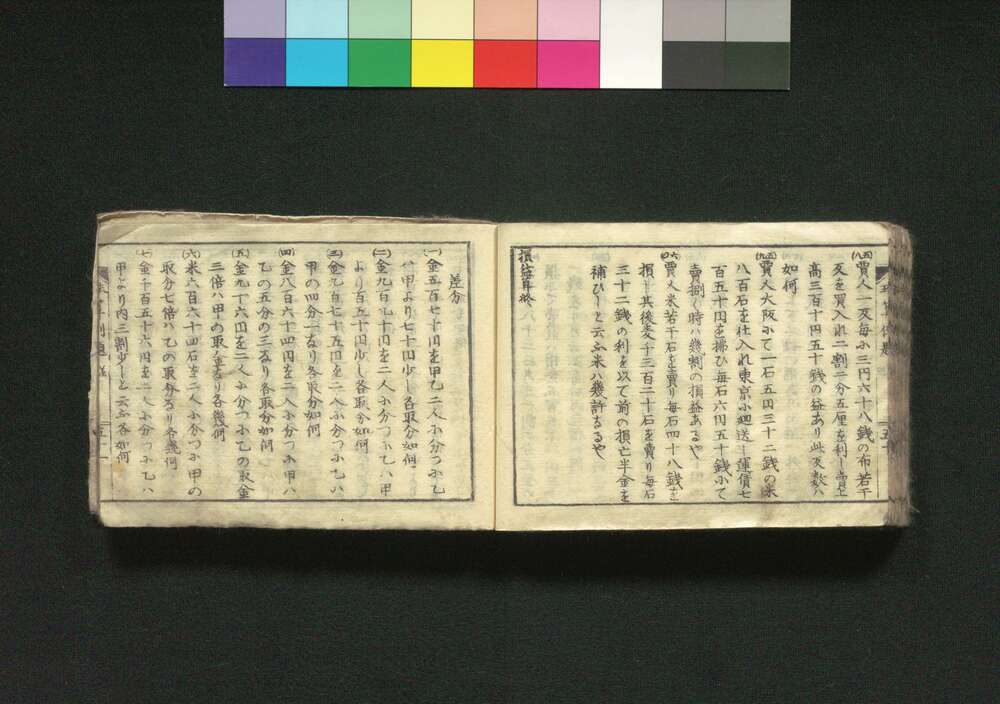 (五八)賈人一反毎小三円六十八銭の布若干
反を買入れ二割二分五厘を利し賣て
高三百十円五十銭の益あり此反数ハ
如何
(五九)賈人大阪小て一石五円三十二銭の米
八百石を仕入れ東京小廻送し運價七
百五十円を拂ひ毎石六円五十銭小て
賣捌く時ハ幾割の損益あるや
(六十)賈人米若干石を賣り毎石四十八銭を
損し其後麦千三百二十石を賣り毎石
三十二銭の利を以て前の損亡半金を
補ひしと云ふ米ハ幾許なるや
損益算終
差分
(一)金五百七十円を甲乙二人小分つ小乙
ハ甲より七十円少し各取分如何
(二)金九百九十円を二人小分つ小乙ハ甲
より百五十円少し各取分如何
(三)金九百七十五円を二人小分つ小乙ハ
甲の四分一なり各取分如何
(四)金八百六十四円を二人小分つ小甲ハ
乙の五分の三なり各取分如何
(五)金九十六円を二人小分つ小乙の取金
三倍ハ甲の取金なり各幾何
(六)米六百六十四石を二人小分つ小甲の
取分七倍ハ乙の取分なり各幾何
(七)金千百五十六円を二人小分つ小乙ハ
甲より内三割少しと云ふ各如何